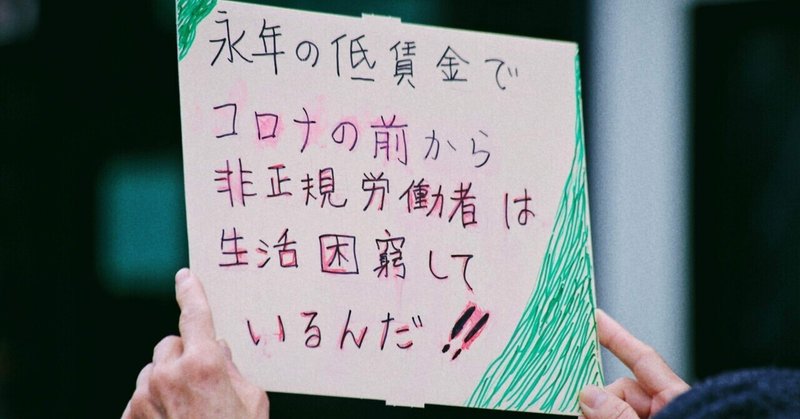 永年の低賃金で
コロナの前から
非正規労働者は
生活困窮して
いるんだ!!